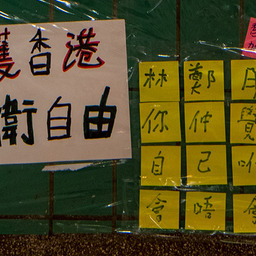 護香港
衛自由
林鄭月
你仲覺
自己
會唔會